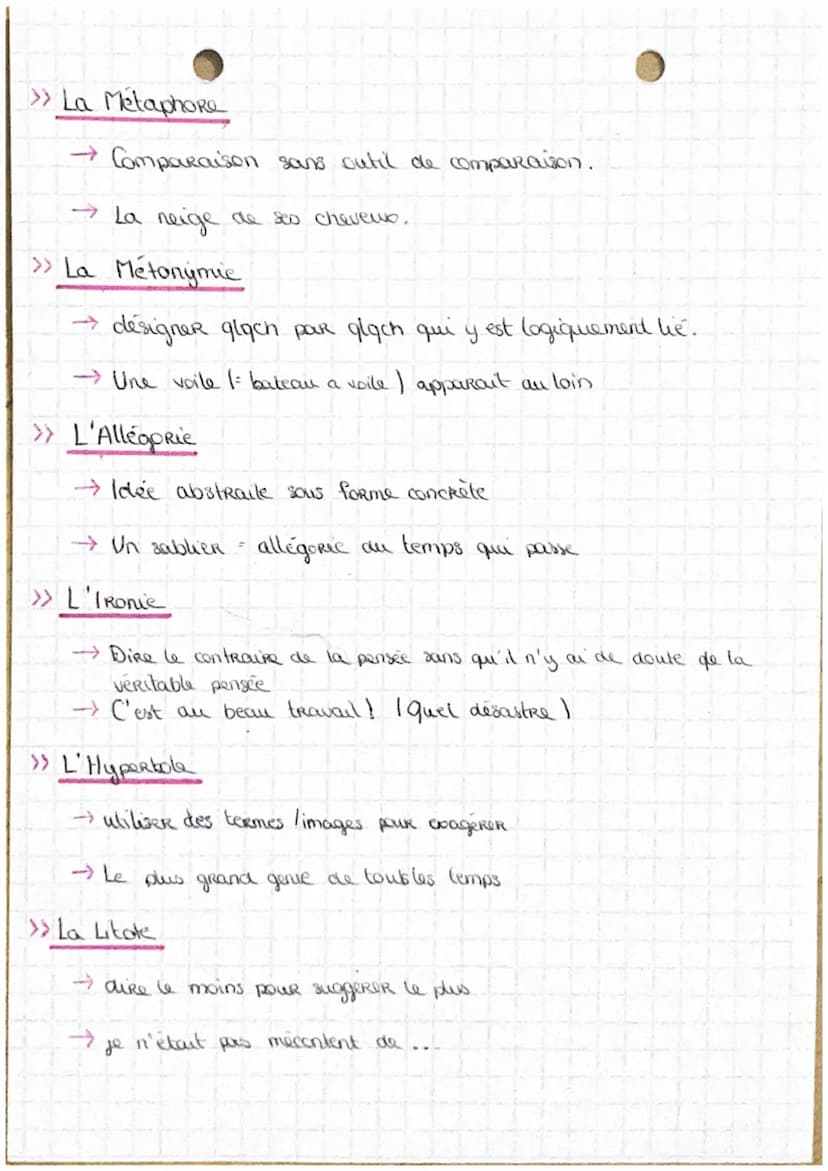 >> La Métaphore
→ Comparaison sans outil de comparaison.
→ La neige de ses cheveux.
>> La Métonymie
→ désigner qlqch par qlqch qui y est logiquement lié.
→ Une voile (= bateau a voile) apparait au loin
>> L'Allégorie
→ Idée abstraite sous forme concrète
→ Un sablier = allégorie du temps qui passe
>> L'Ironie
→ Dire le contraire de la pensée sans qu'il n'y ai de doute de la
véritable pensée
→ C'est au beau travail! (Quel désastre)
>> L'Hyperbole
→ utiliser des termes / images pour exagérer
→ Le plus grand genie de toubles temps
>> La Litote
→ dire le moins pour suggérer le plus
→ je n'était pas mécontent de ...